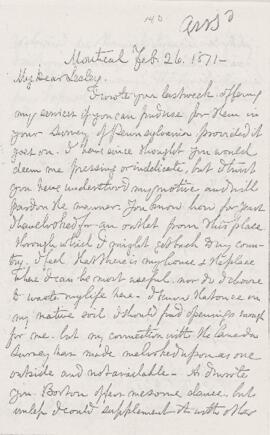 140
Ansd
Montreal Feb. 26. 1871-
My Dear Lesley.
I wrote you last week offering
my services if you can produce for them in
your Survey of Pennsylvania provided it
goes on. I have since thought you would
deem me pressing or indelicate, but I trust
you have understood my motive and will
pardon the manner. You know how for years
I have looked for an outlet from this place
through which I might get back to my coun-
try. I feel that there is my house & the place
where I can be most useful. nor do I choose
to waste my life here - I know that once on
my native soil I should find openings enough
for me. but my connection with the Canadian
Survey has made me looked upon as one
outside and not available - As I wrote
you. Boston offers me some chance, but
unless I could supplement it with other